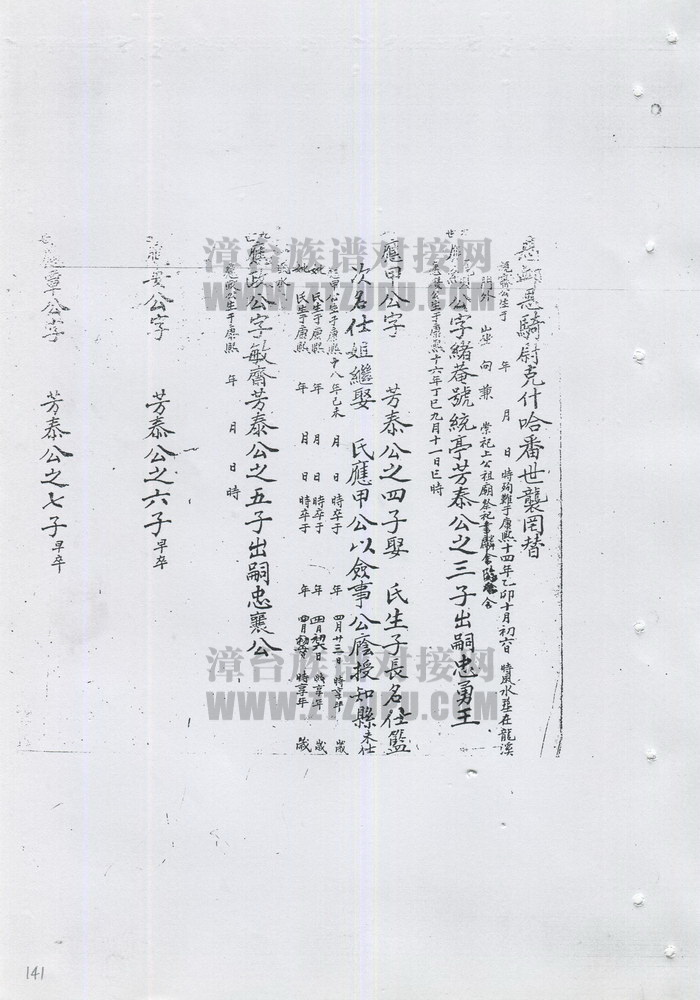 恩騎尉克什哈番世襲罔替
公生于 年 月 日 時殉難于康熙十四年乙卯十月初六日 時風水葬在龍溪
門外 山坐 向兼 崇祀上公祖廟祭祀
公字緒菴號統亭芳泰公之三子出嗣忠勇王
公生于康熙十六年丁巳九月十一日巳時
應甲公字 芳泰公之四子娶 氏生子長名仕籃
次名仕 繼娶 氏應甲公以僉事公廕授知縣未仕
甲公生于康熙十八年乙未 月 日 時卒于 年 四月廿三日 時享年 歲
妣 氏生于康熙 年 月 日 時卒于 年 四月初六日 時享年 歲
妣 氏生于康熙 年 月 日 時卒于 年 四月初 時享年 歲
應政公字敏齋芳泰公之五子出嗣忠襄公
政公生于康熙 年 月 日 時
公字 芳泰公之六子早卒
章公字 芳泰公之七子早卒
漳台族谱对接网
WWW.ZTZUPU.COM
漳台族谱对接网
WWW.ZTZUPU.COM
141